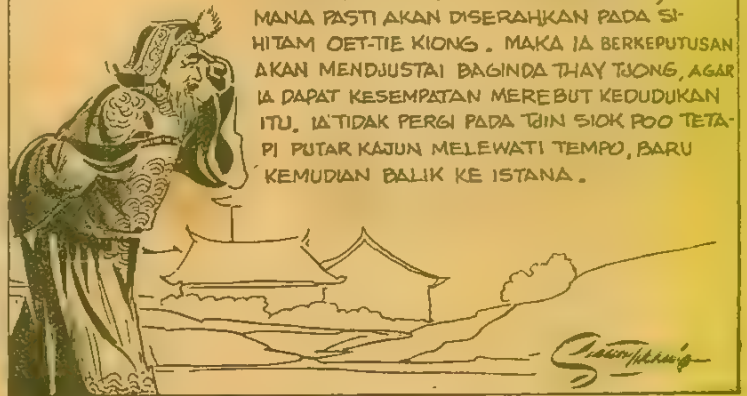 MANA PASTI AKAN DISERAHKAN PADA SI-
HITAM OET-TIE KIONG. MAKA IA BERKEPUTUSAN
AKAN MENDJUSTAI BAGINDA THAY TJONG, AGAR
IA DAPAT KESEMPATAN MEREBUT KEDUDUKAN
ITU. IA TIDAK PERGI PADA TJIN SIOK POO TETA-
PI PUTAR KAJUN MELEWATI TEMPO, BARU
KEMUDIAN BALIK KE ISTANA.